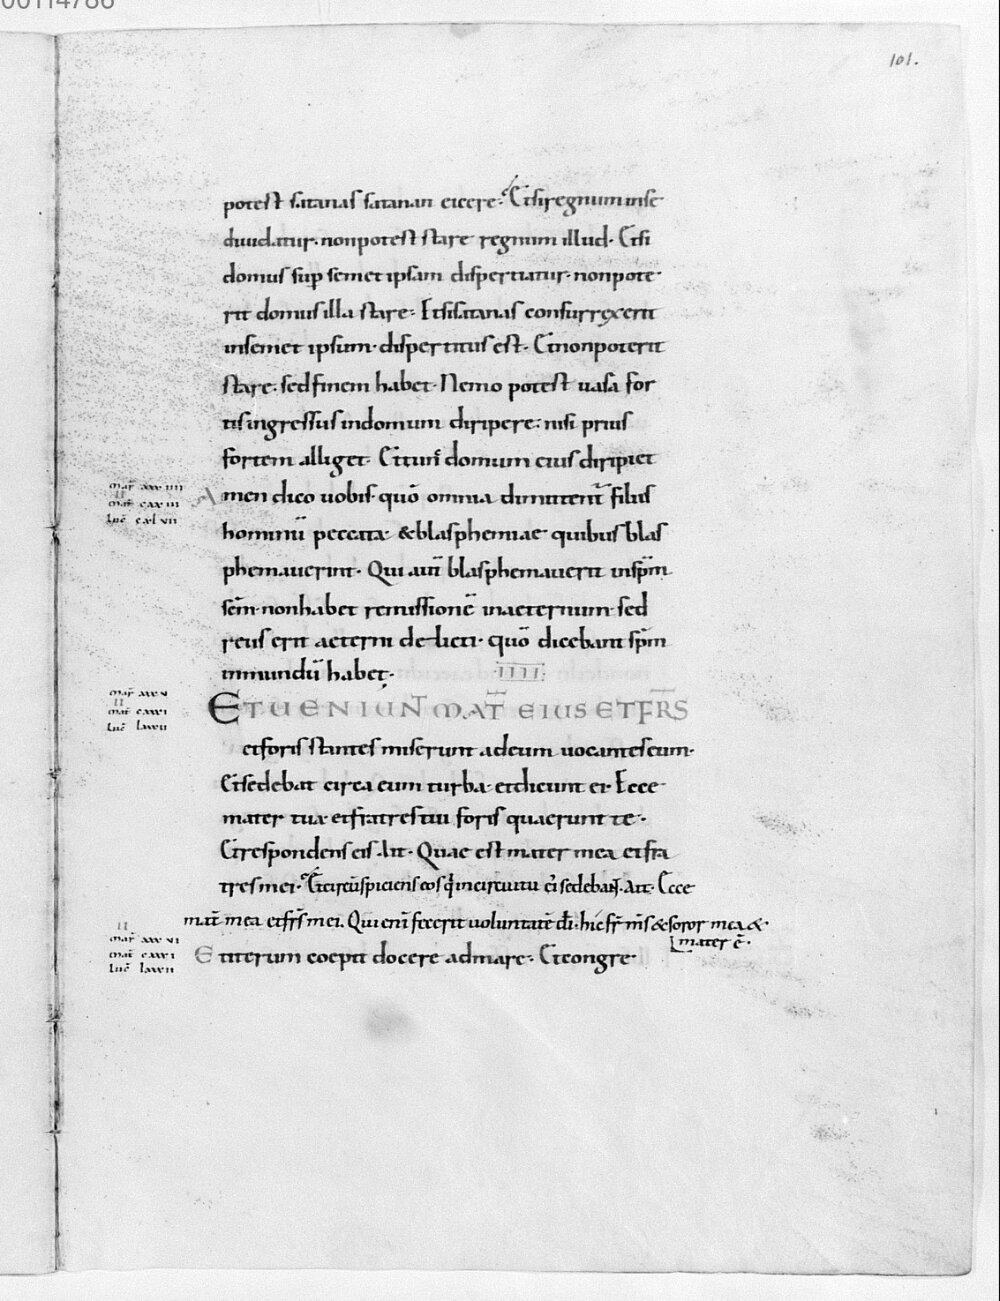 00114786
101.
potest satanas satanan eicere· Et si regnum in se
diuidatur· non potest stare regnum illud· Et si
domus sup semet ipsam dispertiatur· non pote
rit domus illa stare· Et si satanas consurrexerit
in semet ipsum· dispertitus est· Et non poterit
stare· sed finem habet· Nemo potest uasa for
tis ingressus in domum diripere· nisi prius
fortem alliget· Et domum eius diripiet
mar̄ xxxiiii
II
mat̄ cxxiii
luc̄ cxlvii
Amen dico uobis· quō omnia dimittent̄ filiis
hominū peccata· & blasphemiae quibus blas
phemauerint· Qui aut̄ blasphemauerit in sp̄m
sc̄m· non habet remissionē in aeternum· sed
reus erit aeterni delicti· quō dicebant sp̄m
inmundū habet·
IIII·
mar̄ xxxv
II
mat̄ cxxxi
luc̄ lxxxii
ET UENIUNT MAT̄ EIUS ET FR̄S
et foris stantes miserunt ad eum uocantes eum·
Et sedebat circa eum turba· et dicunt ei· Ecce
mater tua et fratres tui foris quaerunt te·
Et respondens eis· Ait· Quae est mater mea et fra
tres mei· Et circūspiciens eos q̄ in circuitu ei sedebant· Ait· Ecce
mat̄ mea et fr̄s mei. Qui eni fecerit uoluntatē dī· hic fr̄ m̄s & soror mea &·
mater ē·
II
mar̄ xxxvi
mat̄ cxxxi
luc̄ lxxxii
Et iterum coepit docere ad mare· Et congre·